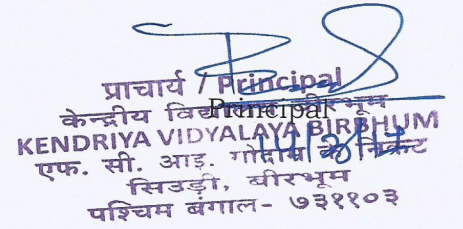 प्राचार्य / Principal
केन्द्रीय विद्यालय बीरभूम
Principal
KENDRIYA VIDYALAYA BIRBHUM
एफ. सी. आइ. गोदाम के निकट
सिउड़ी, बीरभूम
पश्चिम बंगाल- ७३११०३